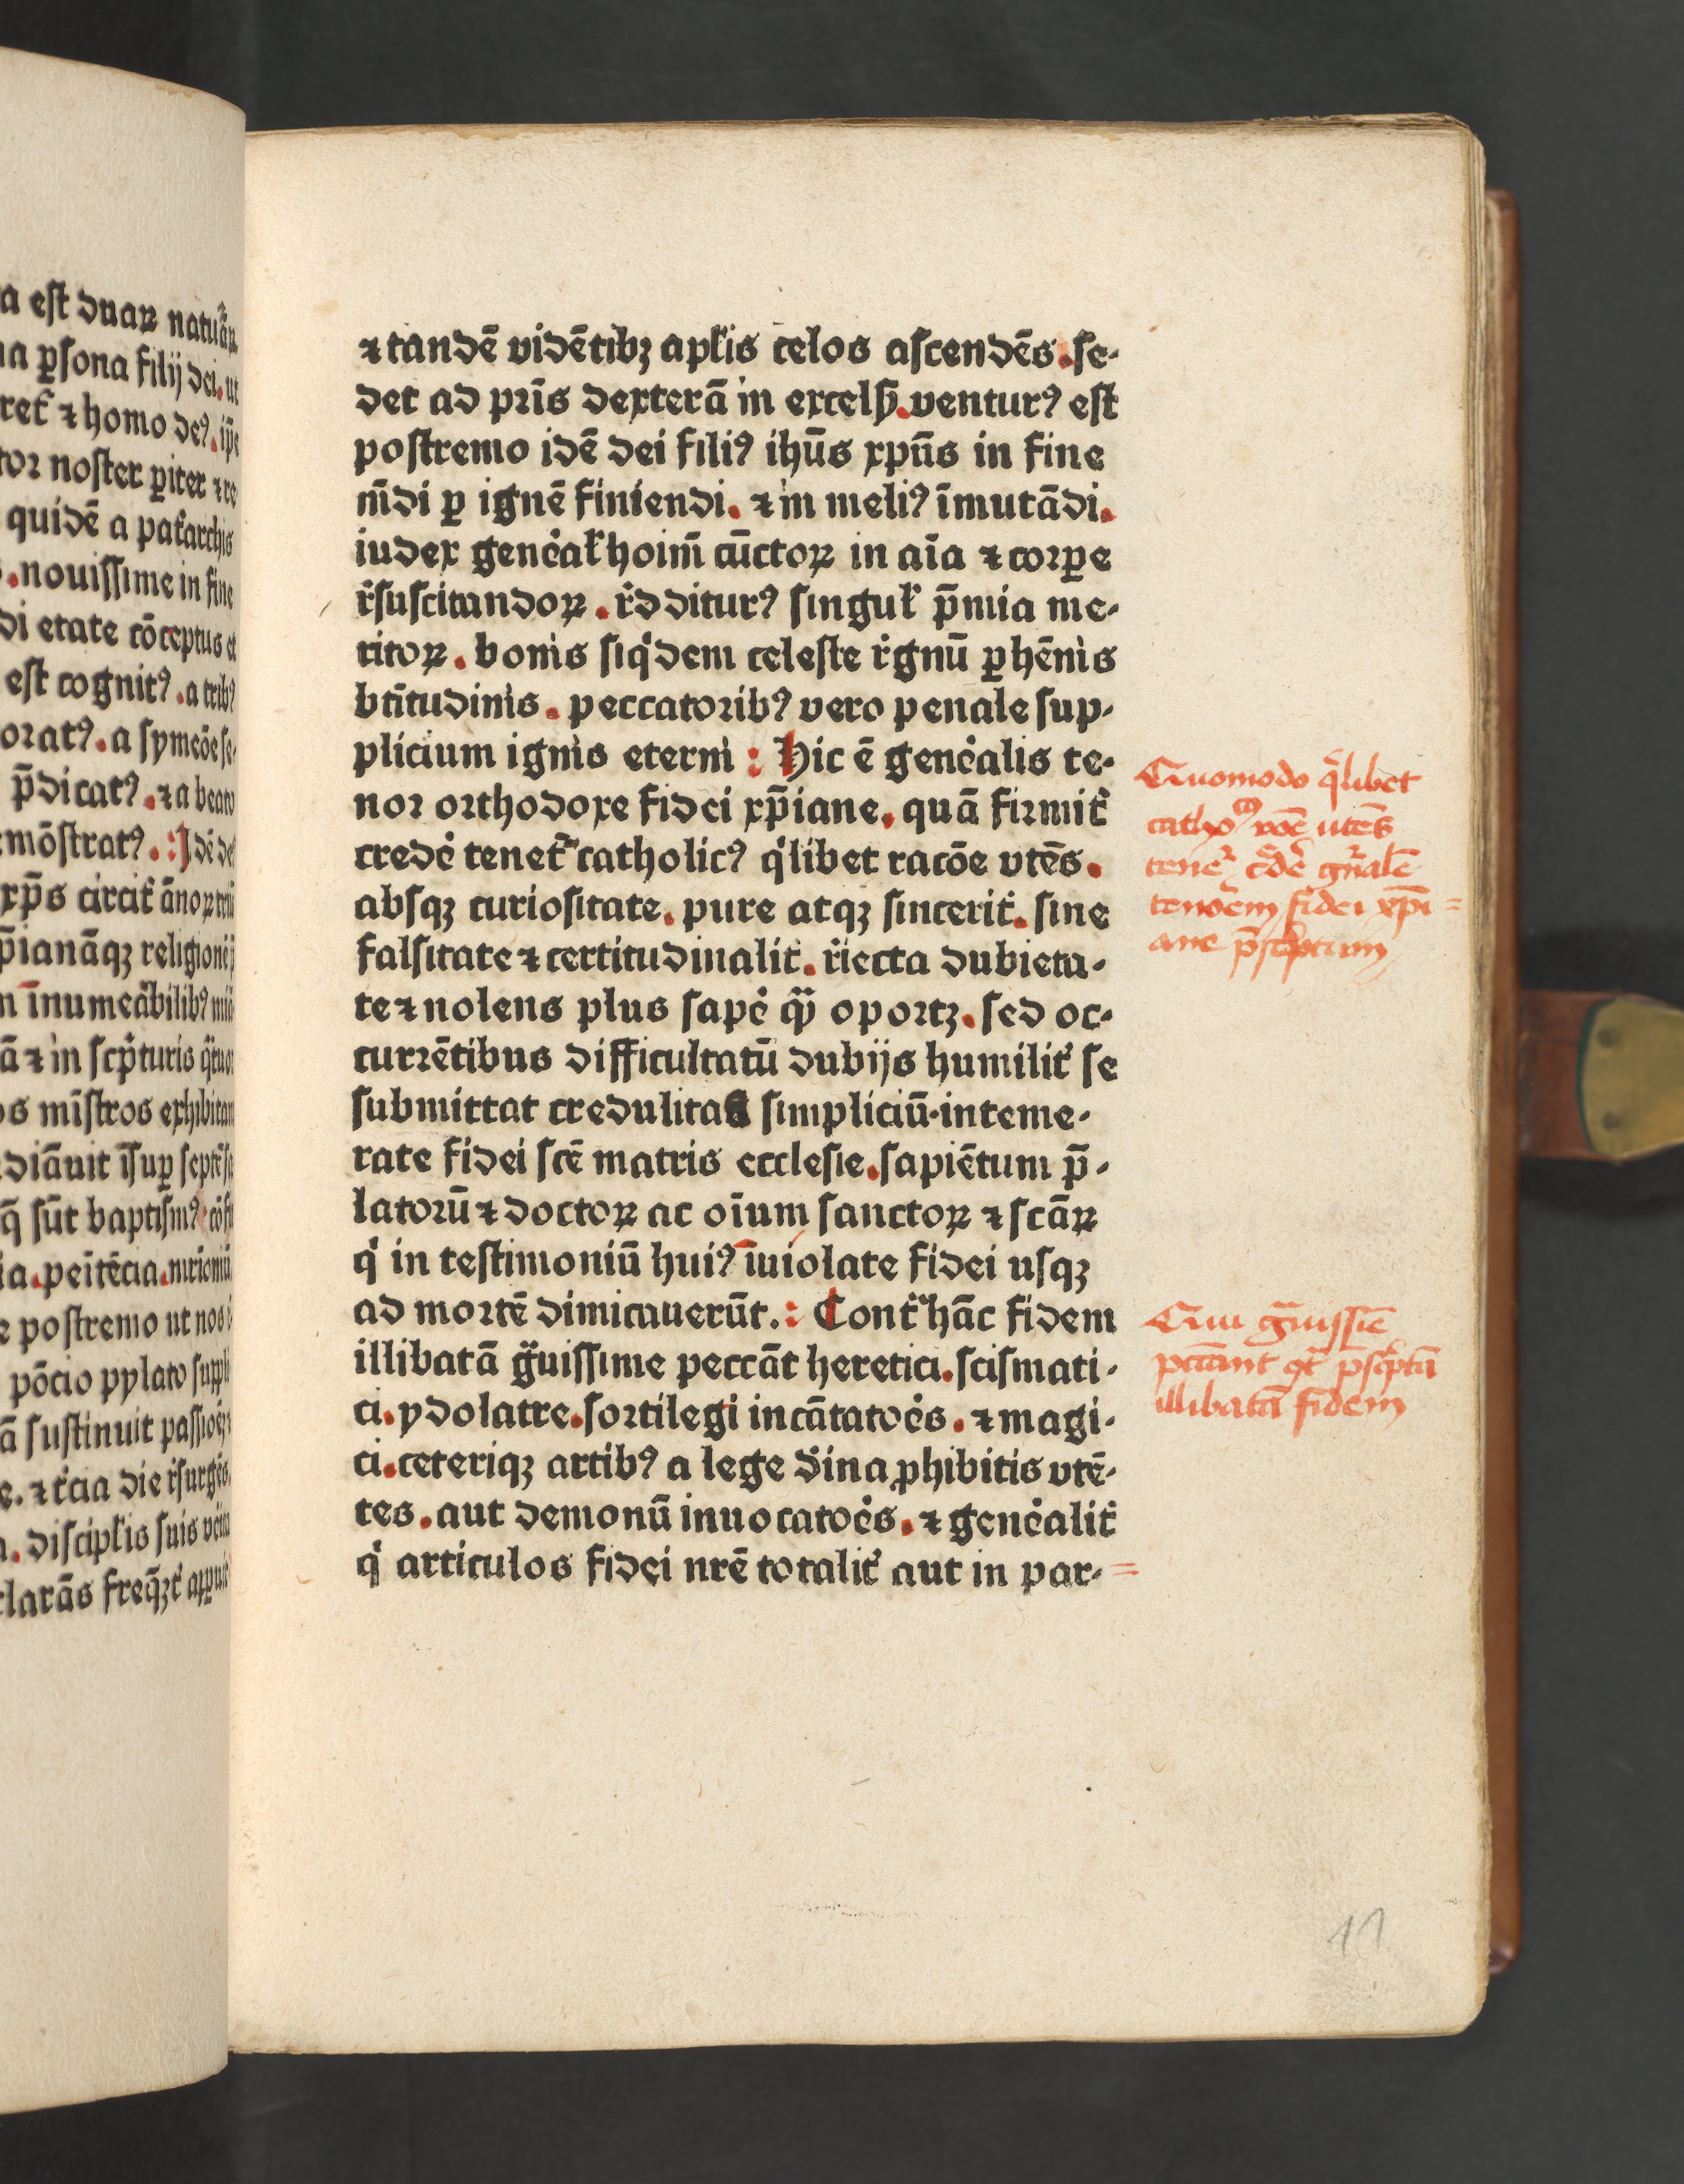 a est duaꝝ natuꝝ
na ꝑsona filij dei. ut
ret̃ ⁊ homo deꝰ. ip̄e
tor noster ꝑiter ⁊ re
quidē a pat̾archis
. nouissime in fine
di etate cōceptus et
est cognitꝰ. a tribꝰ
oratꝰ. a symeōe se-
p̄dicatꝰ. ⁊ a beato
mōstratꝰ. : Idē deꝰ
xp̄s circit̾ ānoꝝ
p̄ianāqꝫ religionē
īnumeabilibꝰ
ā ⁊ in scp̾turis
os mīstros exhibitam
diāuit īsuꝑ septē
q̄ sūt baptism̄ꝰ
ia. peītēcia.
e postremo ut nos
pōcio pylato
ā sustinuit
e. ⁊ t̾cia die r̾surgēs
. discipl̾is suis
clarās freq̄ꝫt̾
⁊ tandē vidētibꝫ apl̾is celos ascendēs. se-
det ad pr̄is dexterā in excelsꝭ. venturꝰ est
postremo idē dei filiꝰ ihūs xpūs in fine
m̄di ꝑ ignē finiendi. ⁊ in meliꝰ īmutādi.
iudex gene̾al̾ hoim̄ cūctoꝝ in aīa ⁊ corꝑe
r̾suscitandoꝝ. r̾dditurꝰ singul̾ p̄mia me-
ritoꝝ. bonis siqͥdem celeste r̾gnū ꝑhēnis
bt̄itudinis. peccatoribꝰ vero penale sup-
plicium ignis eterni : Hic ē gene̾alis te-
nor orthodoxe fidei xp̄iane. quā firmit̾
crede̾ tenet̾ catholicꝰ qͥlibet racōe vtēs.
absqꝫ curiositate. pure atqꝫ sincerit̾. sine
falsitate ⁊ certitudinalit̾. r̾iecta dubieta-
te ⁊ nolens plus sape̾ qͣꝫ oportꝫ. sed oc-
currētibus difficultatū dubijs humilit̾ se
submittat credulitas simpliciū. inteme-
rate fidei scē matris ecclesie. sapiētum p̄-
latorū ⁊ doctoꝝ ac oīum sanctoꝝ ⁊ scāꝝ
qͥ in testimoniū huiꝰ īuiolate fidei usqꝫ
ad mortē dimicauerūt. : Cont̾ hāc fidem
illibatā gͣuissime peccāt heretici. scismati-
ci. ydolatre. sortilegi incātatoe̾s. ⁊ magi-
ci. ceteriqꝫ artibꝰ a lege diͥna ꝓhibitis vtē-
tes. aut demonū inuocatoe̾s. ⁊ gene̾alit̾
qͥ articulos fidei nrē totalit̾ aut in par-
Quomodo qͥlibet
cathoᶜꝰ rōē utēs
tenet̾ c̾de̾ gn̄alē
teno̾em fidei xp̄i=
ane p̄scͥptum
Qui gͣuissīe
pccānt ꝯt̾ p̄scͥptā
illibatā fidem
11